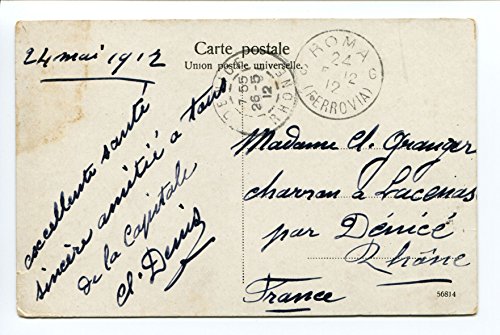 Carte postale
Union postale universelle.
24 mai 1912
excellente santé
sincère amitié a tous
de la Capitale
Cl. Denis
ROMA
24
12
12
(FERROVIA)
7 55
26-5
12
RHONE
Madame Cl. Granger
charron à Lacenas
par Dénicé
Rhône
France
56814